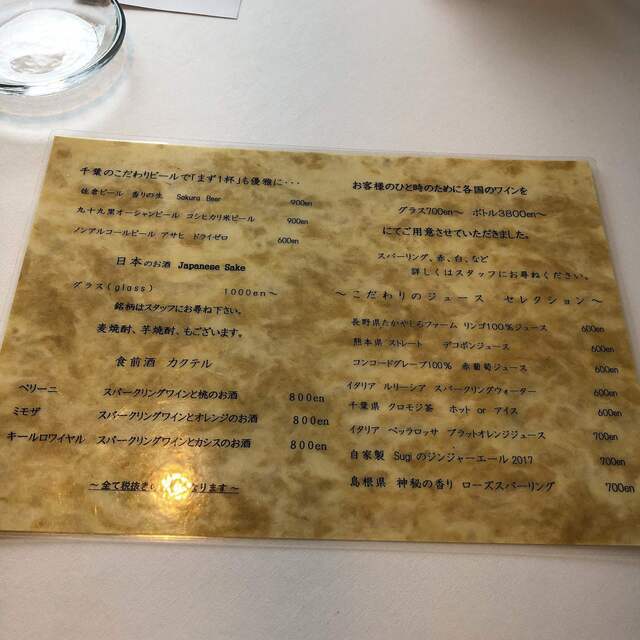 千葉のこだわりビールで「まず1杯」も優雅に・・・
佐倉ビール 香りの生 Sakura Beer 900en
九十九里オーシャンビール コシヒカリ米ビール 900en
ノンアルコールビール アサヒ ドライゼロ 600en
日本のお酒 Japanese Sake
グラス(glass) 1000en~
銘柄はスタッフにお尋ね下さい。
麦焼酎、芋焼酎、もございます。
食前酒 カクテル
ベリーニ スパークリングワインと桃のお酒 800en
ミモザ スパークリングワインとオレンジのお酒 800en
キールロワイヤル スパークリングワインとカシスのお酒 800en
~全て税抜き なります~
お客様のひと時のために各国のワインを
グラス700en~ ボトル3800en~
にてご用意させていただきました。
スパーリング、赤、白、など
詳しくはスタッフにお尋ねください。
~こだわりのジュース セレクション~
長野県たかやしろファーム リンゴ100%ジュース 600en
熊本県 ストレート デコポンジュース 600en
コンコードグレープ100% 赤葡萄ジュース 600en
イタリア ルリーシア スパークリングウォーター 600en
千葉県 クロモジ茶 ホット or アイス 600en
イタリア ベッラロッサ ブラットオレンジジュース 700en
自家製 Sugiのジンジャーエール2017 700en
島根県 神秘の香り ローズスパーリング 700en